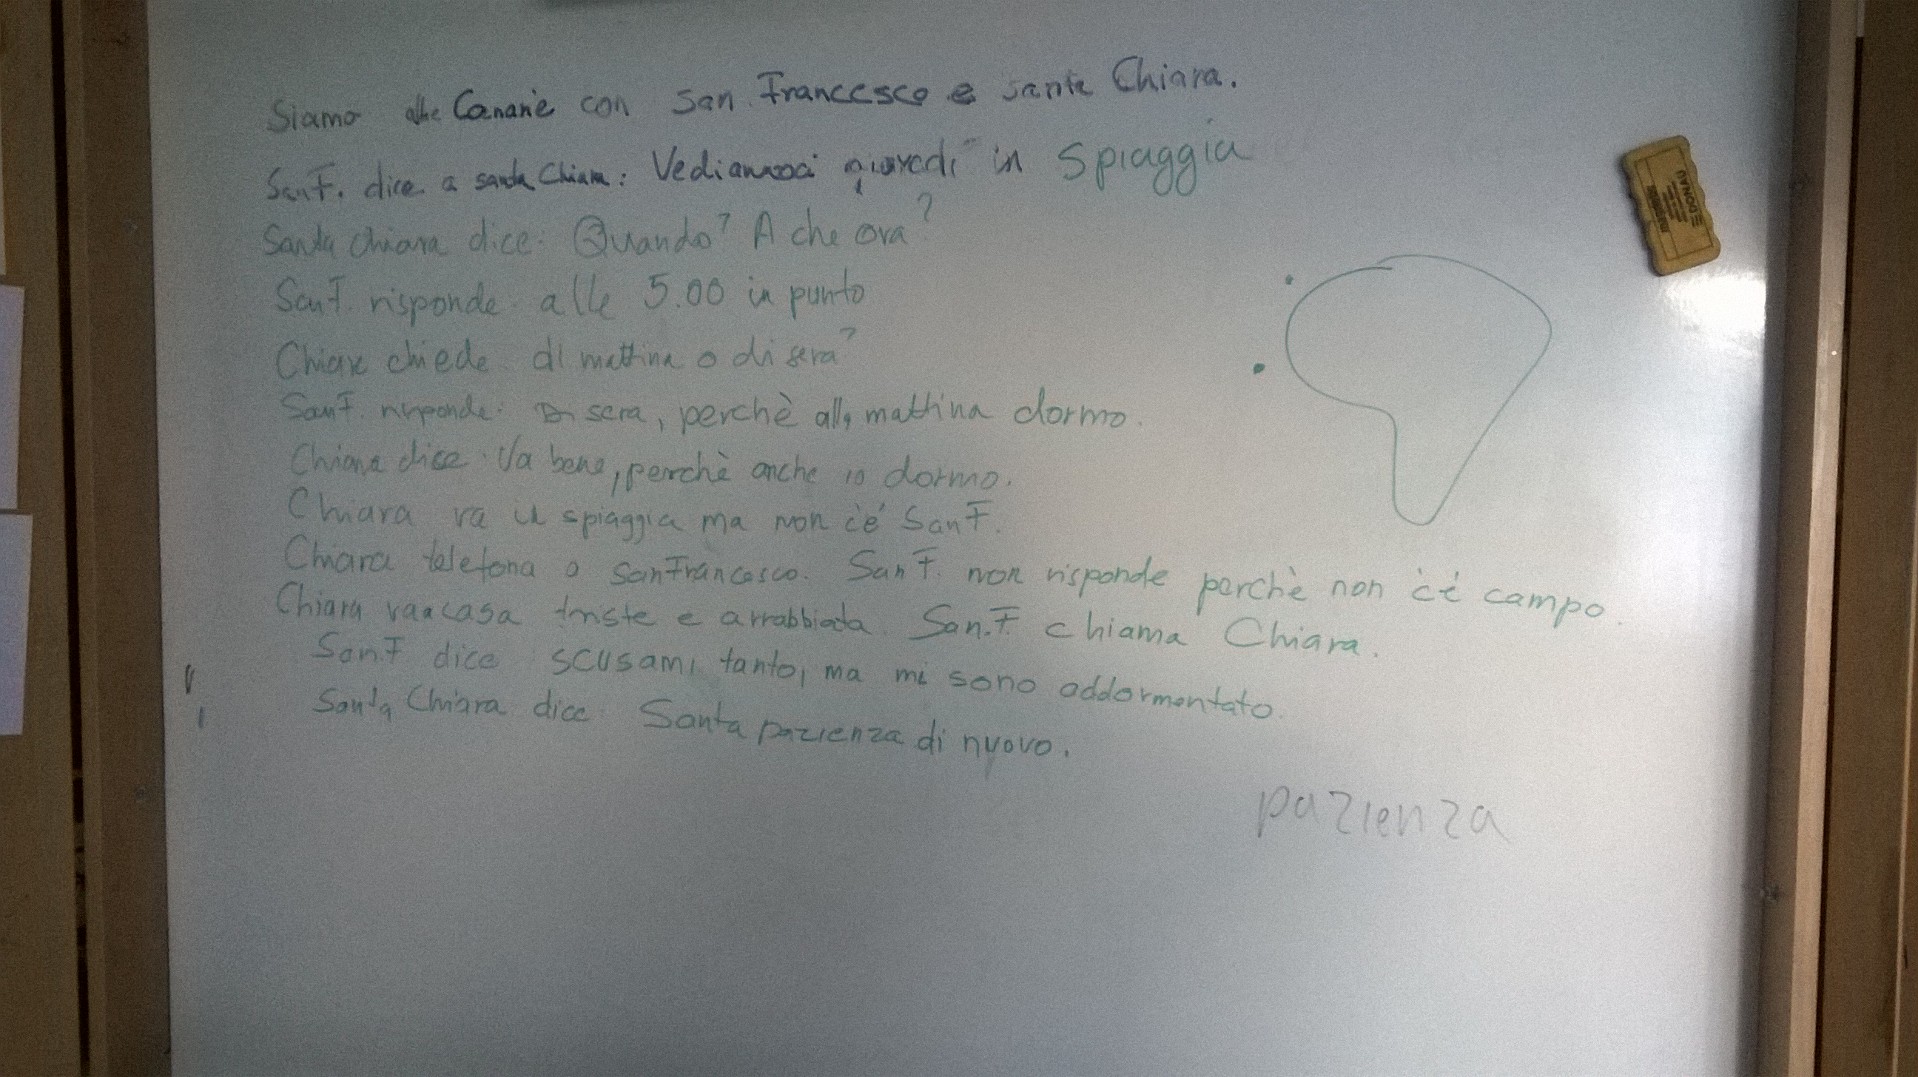 Siamo alle Canarie con San Francesco e santa Chiara.
San F. dice a santa Chiara: Vediamoci giovedì in spiaggia
Santa Chiara dice: Quando? A che ora?
San F. risponde: alle 5.00 in punto
Chiara chiede: di mattina o di sera?
San F. risponde: Di sera, perchè alla mattina dormo.
Chiara dice: Va bene, perchè anche io dormo.
Chiara va in spiaggia ma non c'è San F.
Chiara telefona a San Francesco. San F. non risponde perchè non c'è campo.
Chiara va a casa triste e arrabbiata. San. F. chiama Chiara.
San F dice scusami tanto, ma mi sono addormentato.
Santa Chiara dice: Santa pazienza di nuovo.
pazienza
DONAU